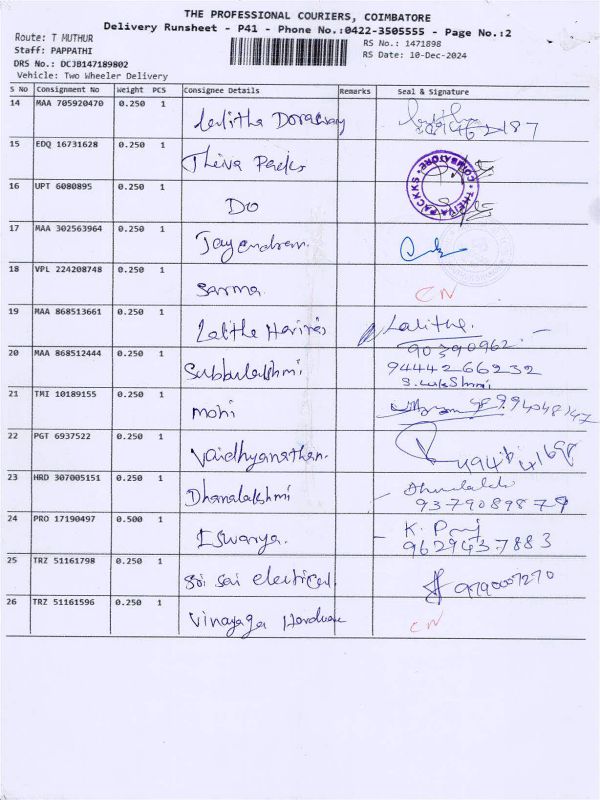 THE PROFESSIONAL COURIERS, COIMBATORE
Delivery Runsheet - P41 - Phone No.:0422-3505555 - Page No.:2
Route: T MUTHUR
RS No.: 1471898
Staff: PAPPATHI
RS Date: 10-Dec-2024
DRS No.: DCJB147189802
Vehicle: Two Wheeler Delivery
S No Consignment No Weight PCS Consignee Details Remarks Seal & Signature
14 MAA 705920470 0.250 1 Lalitha Doraswamy
15 EDQ 16731628 0.250 1 Theiva Packs
THEIVA PACKKS * COIMBATORE *
16 UPT 6080895 0.250 1 Do
17 MAA 302563964 0.250 1 Jayendran.
18 VPL 224208748 0.250 1 Sarma. CN
19 MAA 868513661 0.250 1 Lalitha Lalitha.
90390962
20 MAA 868512444 0.250 1 Subbulakshmi 9444266232
S. Lukshmi
21 TMI 10189155 0.250 1 Mohi
22 PGT 6937522 0.250 1 Vaidhyanathan.
23 HRD 307005151 0.250 1 Dhanalakshmi
9379089879
24 PRO 17190497 0.500 1 Eswarya. K.
9629437883
25 TRZ 51161798 0.250 1 Sri Sai electrical. 9790007270
26 TRZ 51161596 0.250 1 Vinayaga Hardware CN